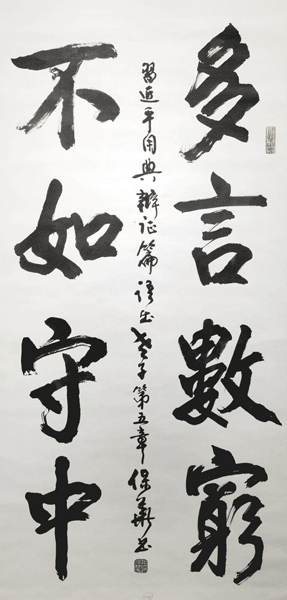 多言數窮
不如守中
習近平用典辯证篇语出老子第五章保華书